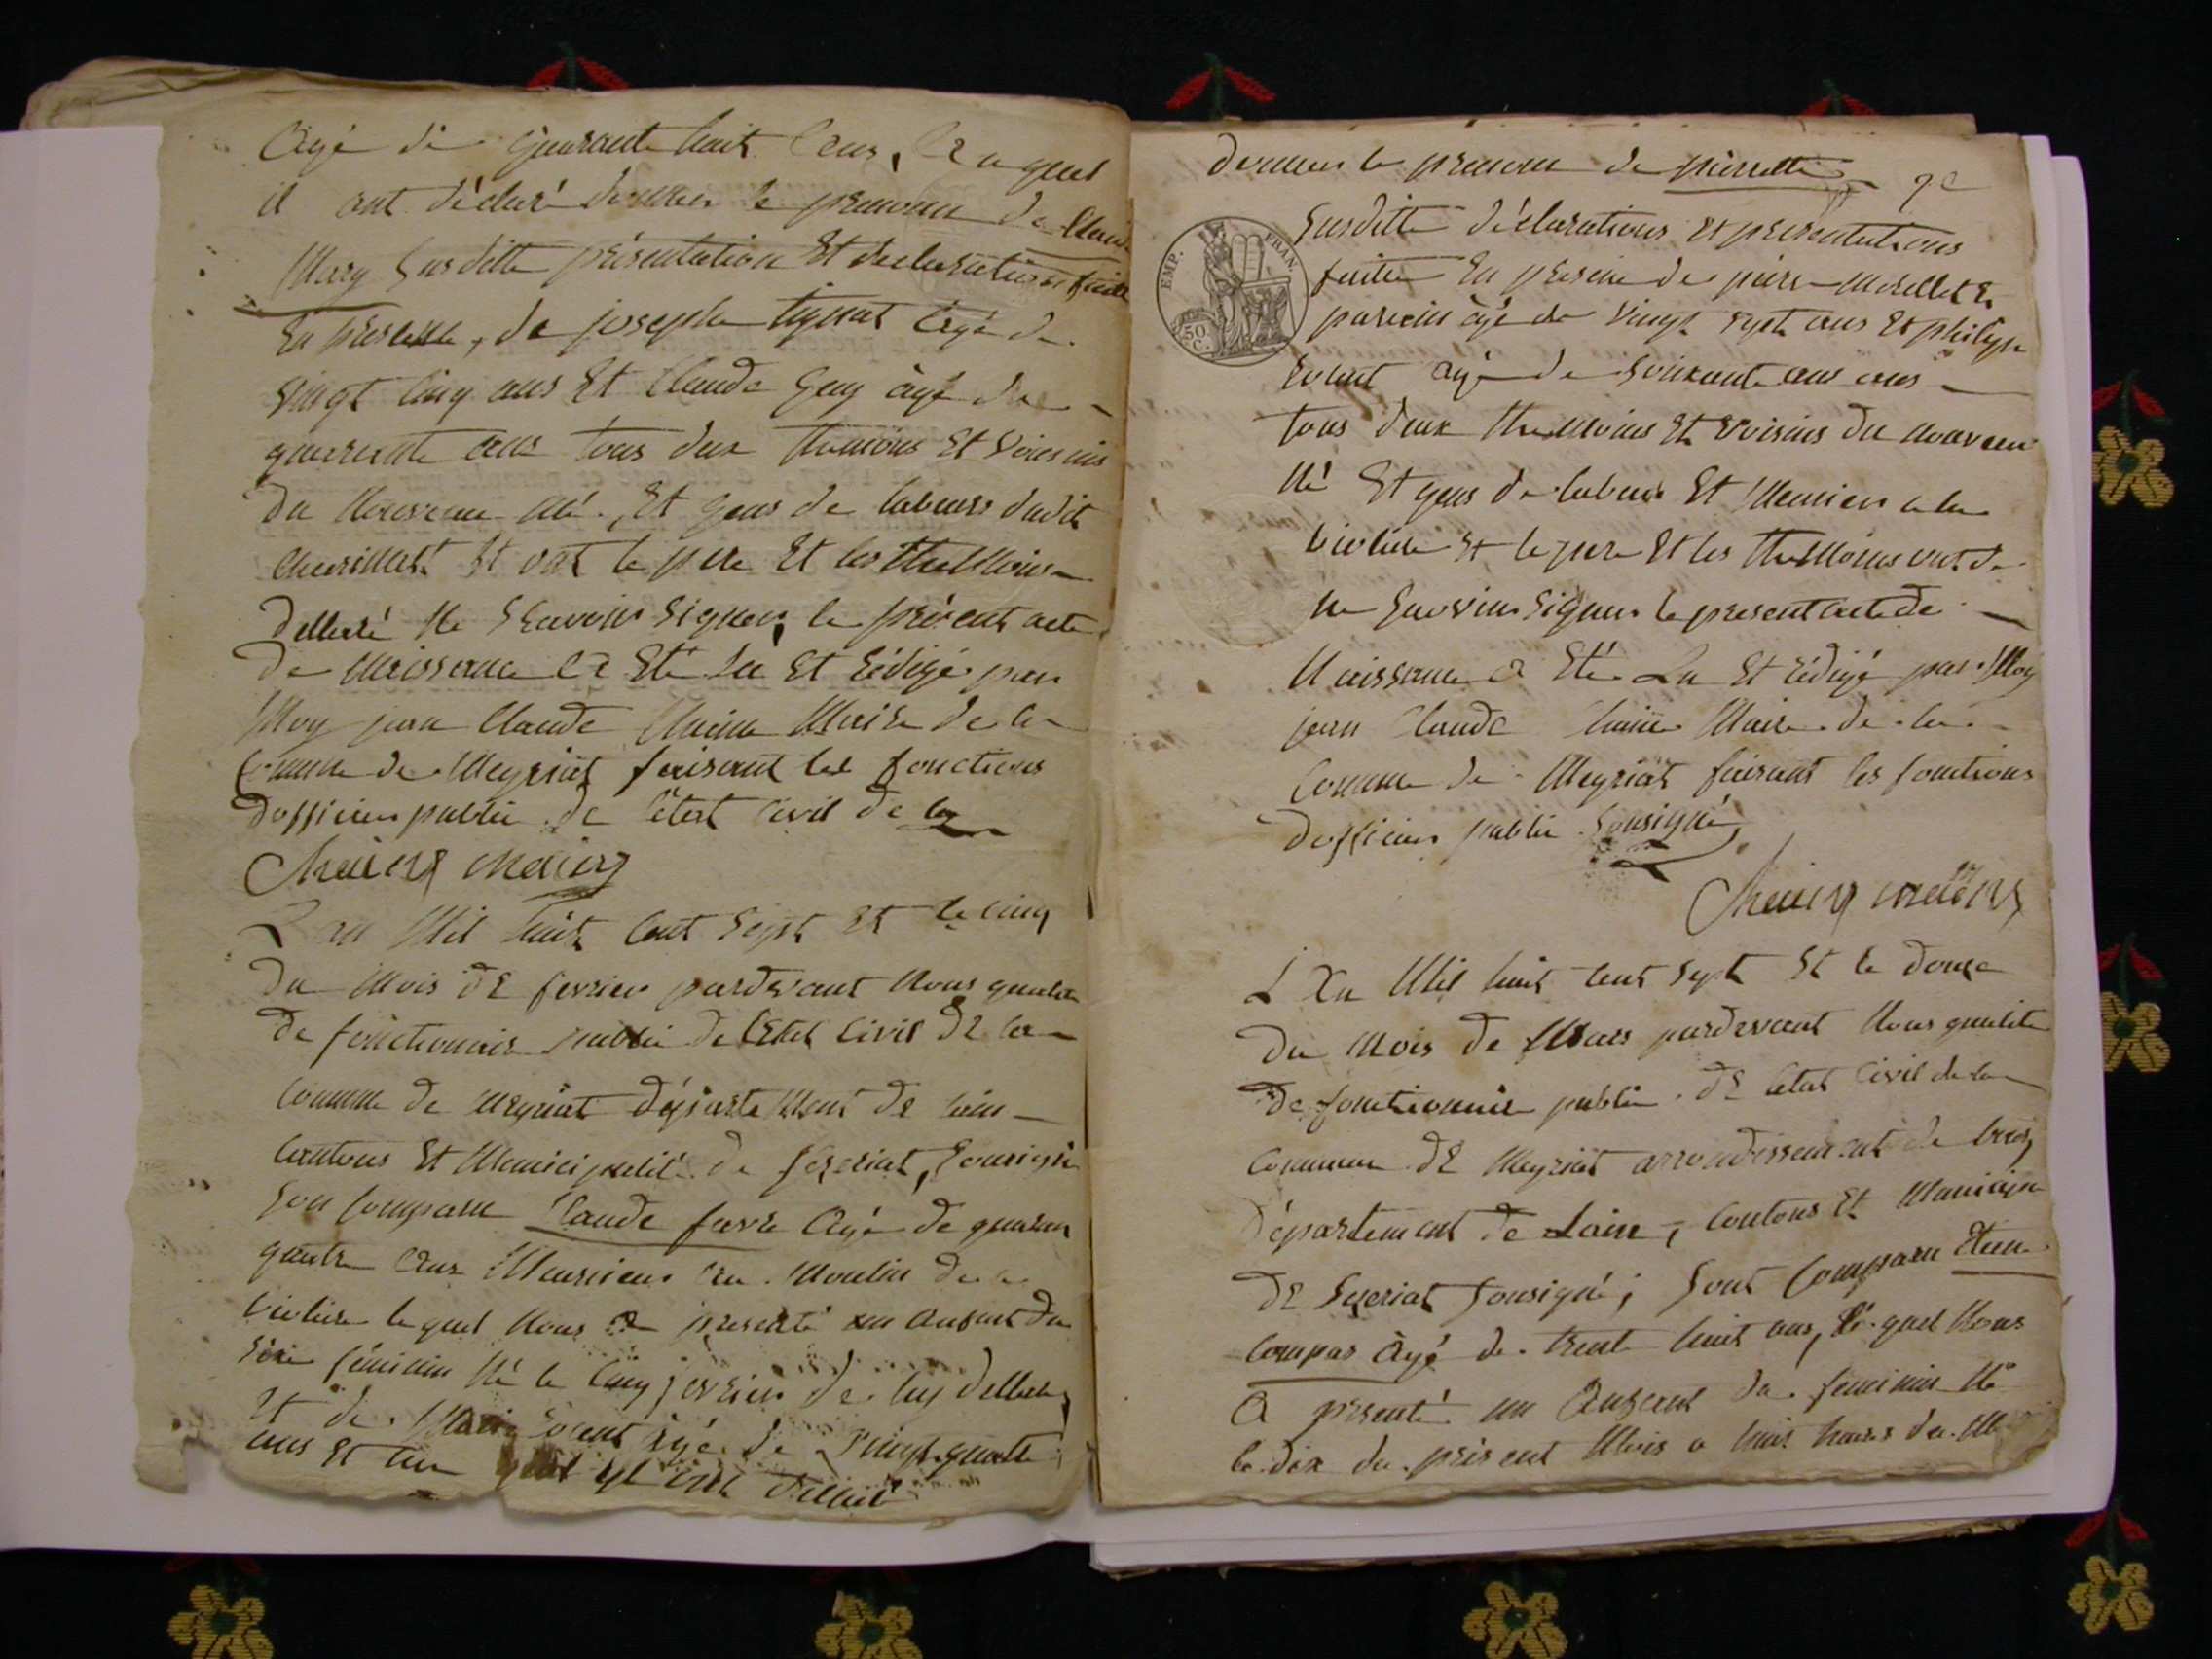 Agé de quarante huit ans, auquel
il ont déclaré donner le prenom de Claude
Mary susditte présentation Et declaration faitte
En présence, de joseph tignat agé de
vingt cinq ans Et Claude guy âgé de
quarante ans tous deux themoins Et voiesins
du nouveau né. Et gens de labeurs dudit
Et ont le pere Et les themoins
dellaré ne scavoir signer, le present acte
de naissance a Eté lu Et rédigé par
Moy jean Claude Chaine Maire de la
Comune de Meyriat faisant les fonctions
dofficier public de létat civil de la
Chaine maire
Lan Mil huit Cent Sept Et le cinq
du Mois de fevrier pardevant Nous qualité
de fonctionnaire public de létat Civil de la
Comune de meyriat département de lain
Cantons Et Municipalité de seyeriat, sousigné
son Comparu Claude favre Agé de quaran
quatre ans Meunieur au Moulin de la
violiere le quel Nous a presenté un Anfant du
sexe féminin Né le Cinq fevrier de luy dellaré
Et de Marie agé de vingt quatre
ans Et
donner le prenom de pierrette
EMP. FRAN.
50 C.
Susditte déclarations Et présentations
faitte En presence de pière Morellet
parrein âgé de vingt sept ans Et philipe
agé de soixante ans
tous deux themoins Et voisins du nouveau
né Et gens de labeur Et Meunier a la
violiere Et le pere Et les themoins ont de
ne scavoir signer le present acte de
Naissance a Eté Lu Et rédigé par Moy
jean Claude Chaine Maire de la
Comune de Meyriat faisant les fonctions
dofficier public sousigné
Chaine maire
L An Mil huit cent sept Et le douze
du Mois de Mars pardevant Nous qualité
de fonctionnaire public de létat Civil de la
Commune de Meyriat arrondissement de bourg
département de Lain, Cantons Et Municipa
de seyeriat sousigné; sont Comparu Etien
Compas Agé de trente huit ans, le quel Nous
A presenté un Anfant du feminin Né
le dix du présent Mois a huit heures du M